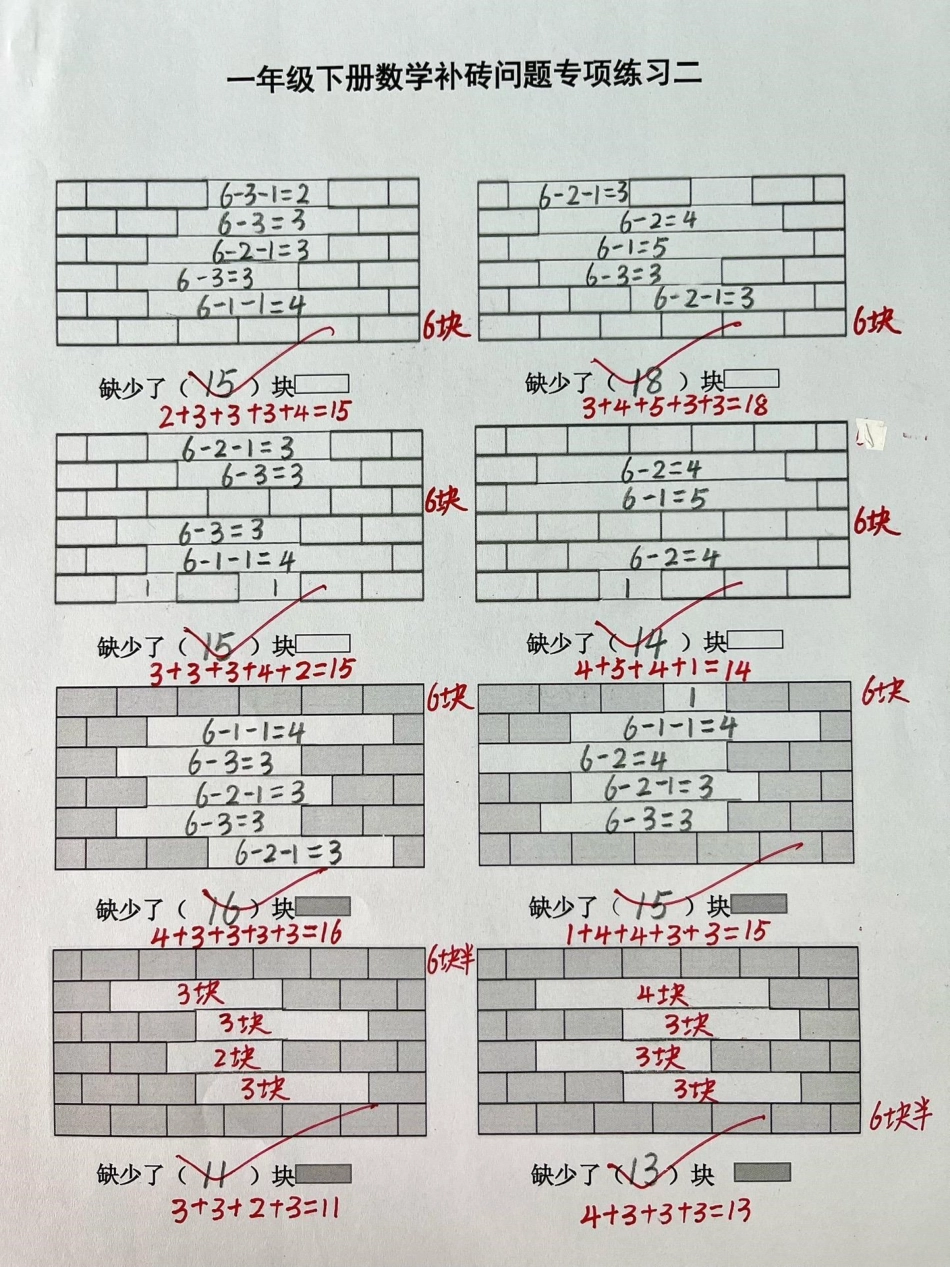 一年级下册数学补砖问题专项练习二
6-3-1=2
6-3=3
6-2-1=3
6-3=3
6-1-1=4
6块
缺少了（15）块
2+3+3+3+4=15
6-2-1=3
6-2=4
6-1=5
6-3=3
6-2-1=3
6块
缺少了（18）块
3+4+5+3+3=18
6-2-1=3
6-3=3
6块
6-3=3
6-1-1=4
1 1
缺少了（15）块
3+3+3+4+2=15
6-2=4
6-1=5
6块
6-2=4
1
缺少了（14）块
4+5+4+1=14
6块
6-1-1=4
6-3=3
6-2-1=3
6-3=3
6-2-1=3
缺少了（16）块
4+3+3+3+3=16
1
6块
6-1-1=4
6-2=4
6-2-1=3
6-3=3
缺少了（15）块
1+4+4+3+3=15
6块半
3块
3块
2块
3块
缺少了（11）块
3+3+2+3=11
4块
3块
3块
3块
6块半
缺少了（13）块
4+3+3+3=13